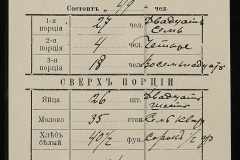 Состоитъ 49 чел.
1-я порція 27 чел. Двадцать семь
2-я порція 4 чел. Четыре
3-я порція 18 чел. Восемнадцать
СВЕРХЪ ПОРЦІИ
Яйца 26 шт. Двадцать шесть
Молоко 35 стак.
Хлѣбъ бѣлый 40½ фун. Сорокъ ½ ф